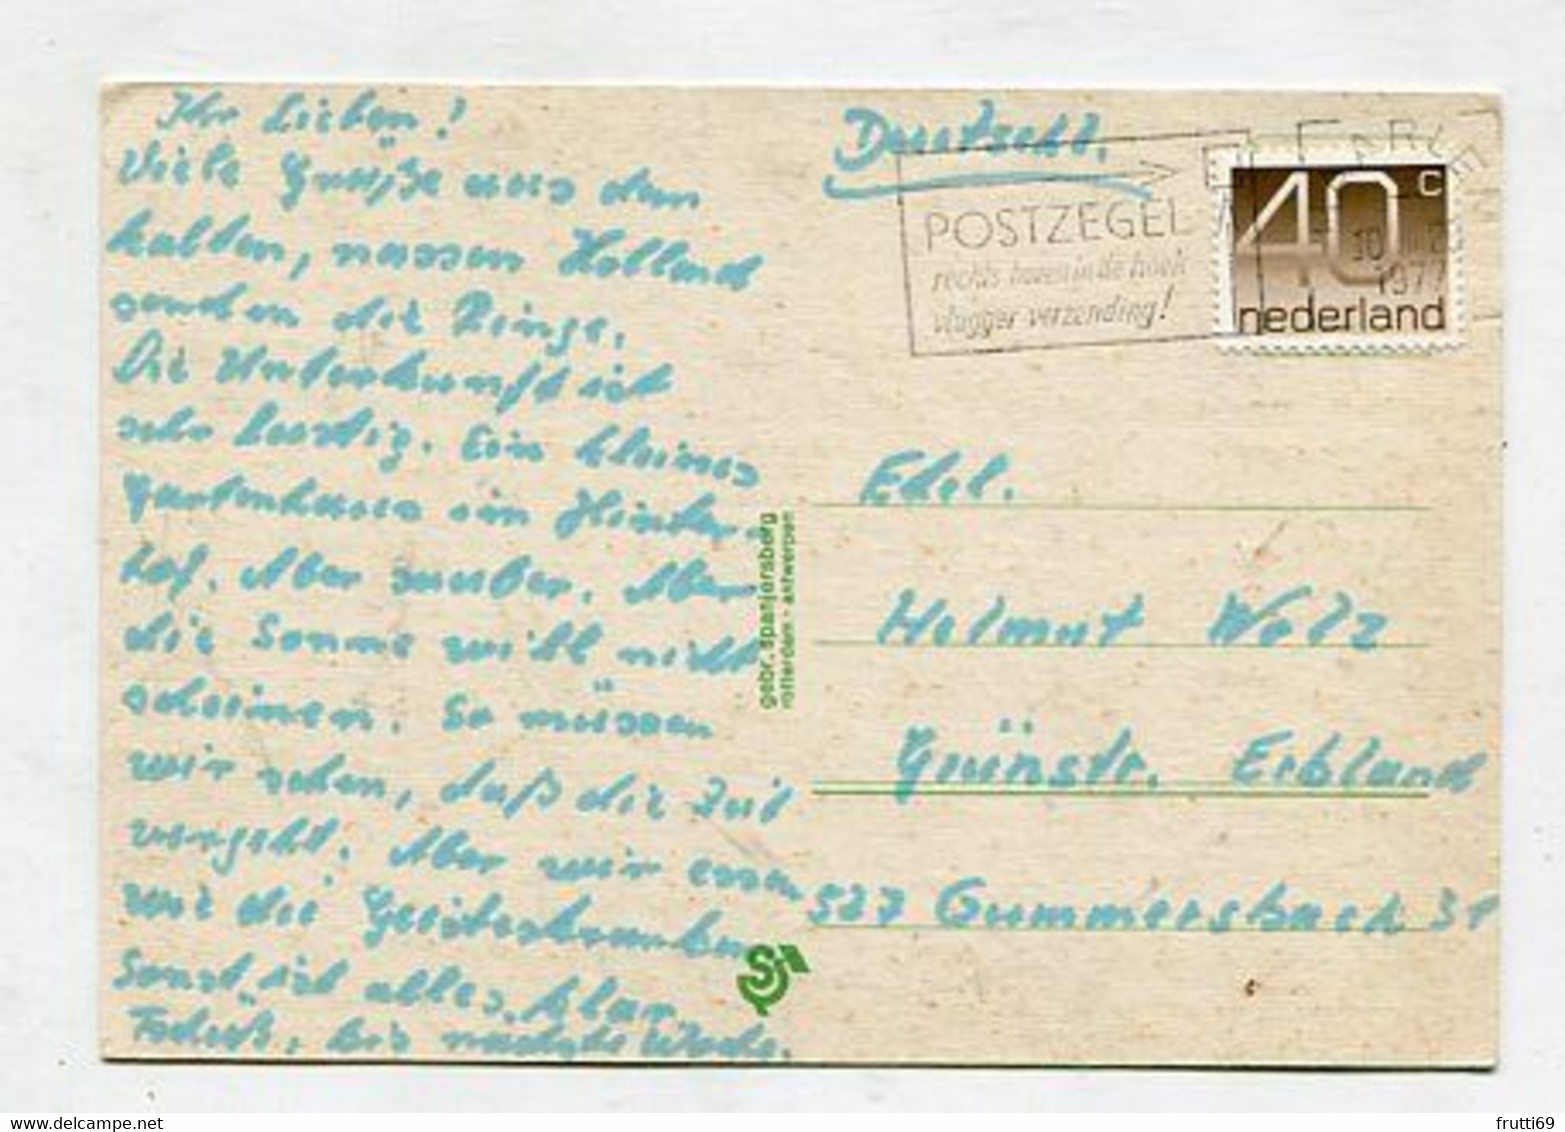 Ihr Lieben!
Viele Grüße aus dem
kalten, nassen Holland
senden die Ringe.
Die Unterkunft ist
sehr lustig. Ein kleines
Gartenhaus im Hinter-
hof. Aber sauber. Aber
die Sonne will nicht
scheinen. So müssen
wir sehen, daß die Zeit
vergeht. Aber wir essen
wie die Geisteskranken
Sonst ist alles klar
Tschüß, bis nächste Woche.
gebr. spanjersberg
rotterdam - antwerpen
S
Deutschl.
POSTZEGEL
rechts boven in de hoek
vlugger verzending!
10
1977
40c
nederland
Helmut Welz
Grünstr. Erbland
527 Gummersbach 31
frutti69